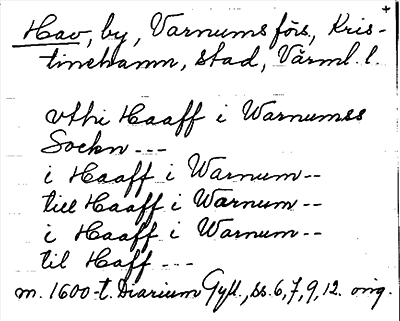 Hav, by, Varnums förs., Kris-
tinehamn, stad, Värml. l.
vthi Haaff i Warnumss
Sockn ---
i Haaff i Warnum--
till Haaff i Warnum --
i Haaff i Warnum--
til Haff ---
m. 1600-t. Diarium Gyll., ss. 6, 7, 9, 12. orig.